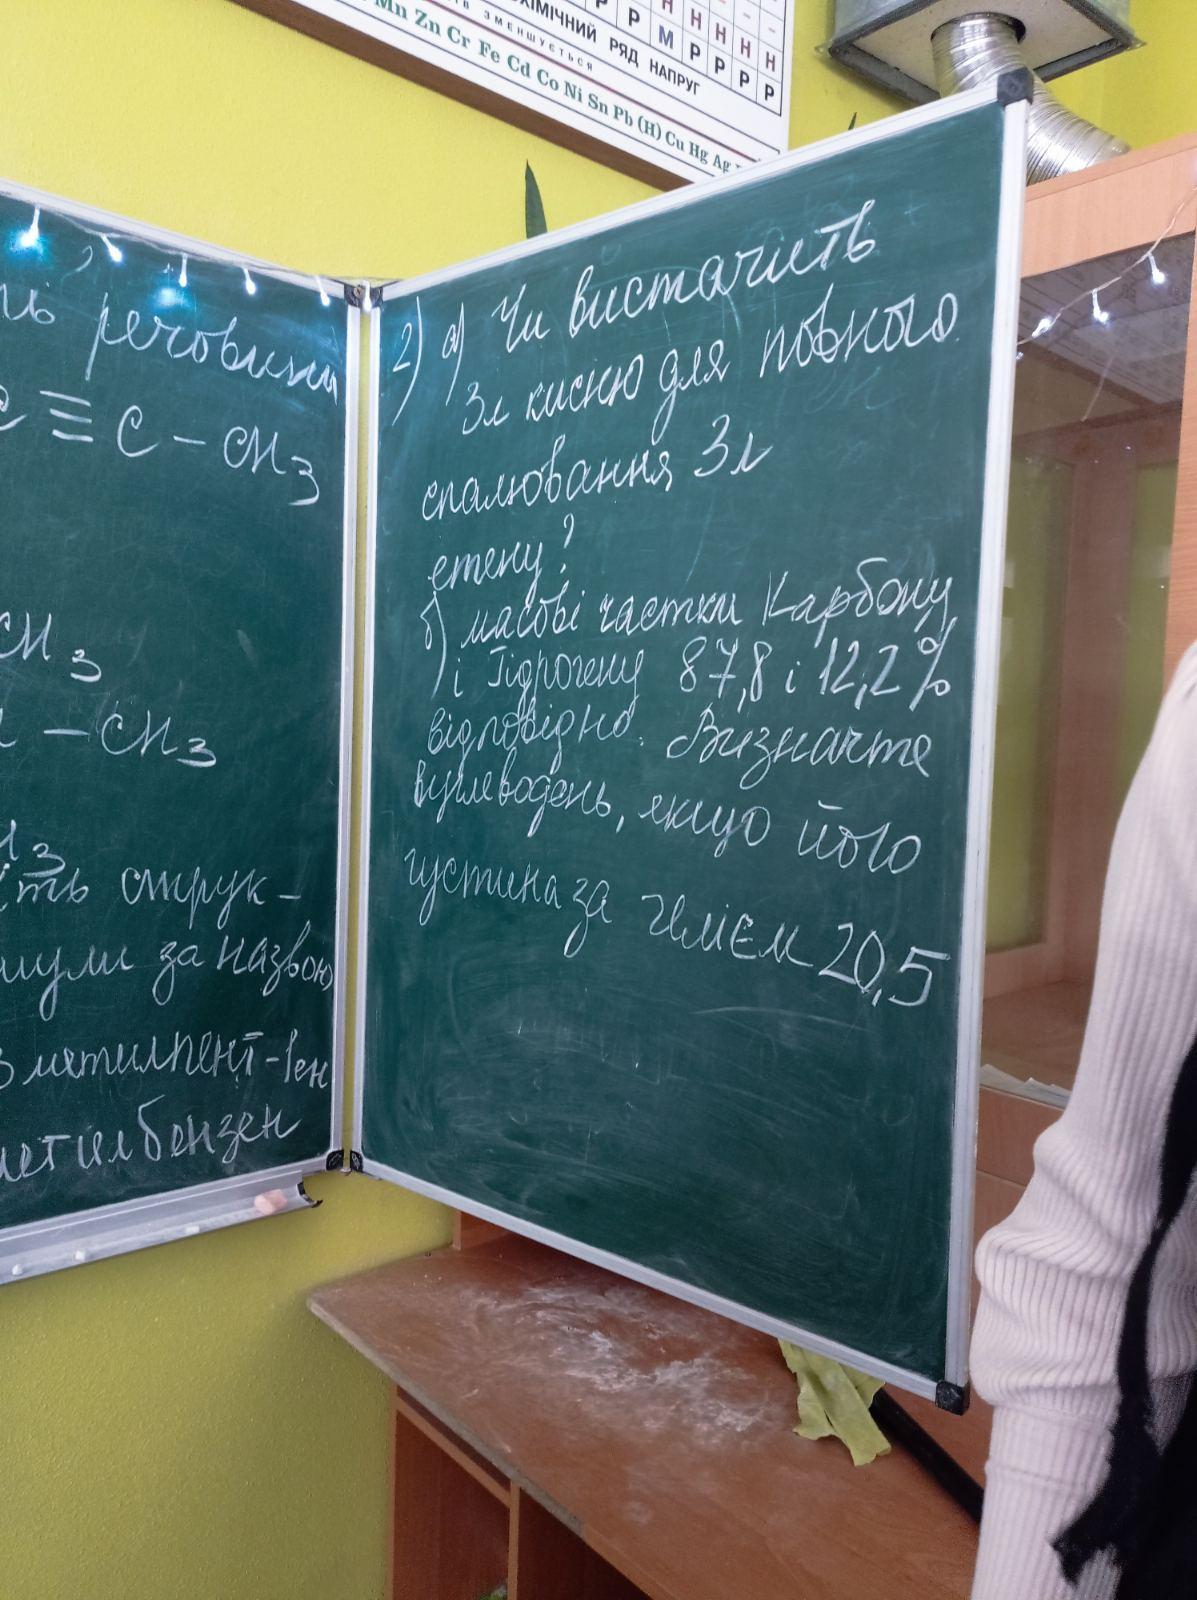 ХІМІЧНИЙ РЯД НАПРУГ
зменшується
Mn Zn Cr Fe Cd Co Ni Sn Pb (H) Cu Hg Ag
Р Р М Р Р Р Р
Н Н Н Н Н
речовини
≡ C – CH3
CH3
– CH3
струк-
за назвою
3 метилпент-1ен
метилбензен
2) а) Чи вистачить
3л кисню для повного
спалювання 3л
етену?
б) масові частки Карбону
і Гідрогену 87,8 і 12,2%
відповідно. Визначте
вуглеводень, якщо його
густина за гелієм 20,5